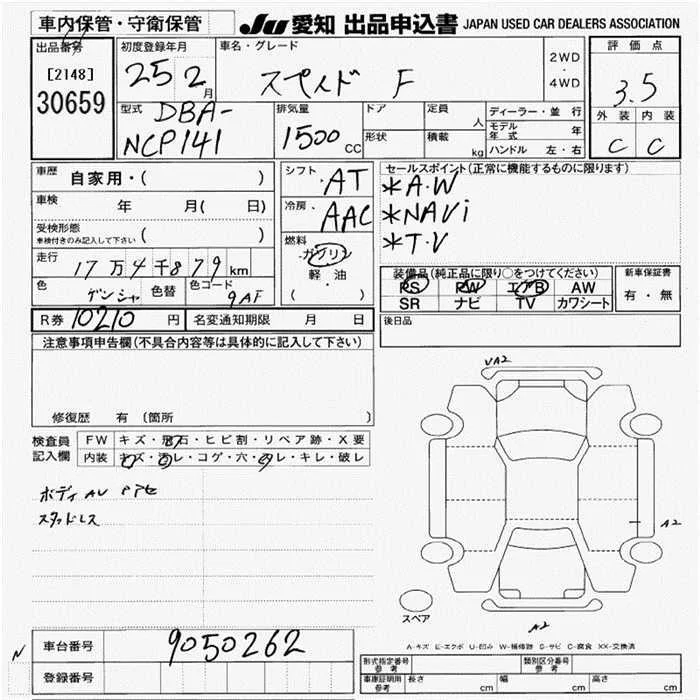 車内保管・守衛保管 JU 愛知 出品申込書 JAPAN USED CAR DEALERS ASSOCIATION
出品番号 初度登録年月 車名・グレード 2WD・4WD 評価点
[2148] 25 2月 F 3.5
30659
型式 排気量 ドア 定員 人 ディーラー・並行 外装 内装
DBA-NCP141 1500 CC 形状 積載 kg モデル年式 年 C C
ハンドル 左・右
車歴 自家用・( ) シフト AT セールスポイント(正常に機能するものに限ります)
車検 年 月( 日) 冷房 AAC *A・W
受検形態 車検付きのみ記入して下さい ( ) *NAVi
走行 17万4千879km 燃料 ガソリン *T・V
軽油
( )
色 色替 色コード 9AF
装備品(純正品に限り○をつけてください) 新車保証書
PS PW エアB AW 有・無
SR ナビ TV カワシート
R券 10210円 名変通知期限 月 日 後日品
注意事項申告欄(不具合内容等は具体的に記入して下さい)
修復歴 有 (箇所
検査員記入欄 FW キズ・飛石・ヒビ割・リペア跡・X要
内装 キズ・汚レ・コゲ・穴・スレ・キレ・破レ
ボディ AU
スタッドレス
UA2
A2
A2
スペア
A-キズ E-エクボ U-凹み W-補修跡 S-サビ C-腐食 XX-交換済
N 車台番号 9050262
登録番号
形式指定番号 参考 類別区分番号 参考
車庫証明用 参考 長さ cm 幅 cm 高さ cm